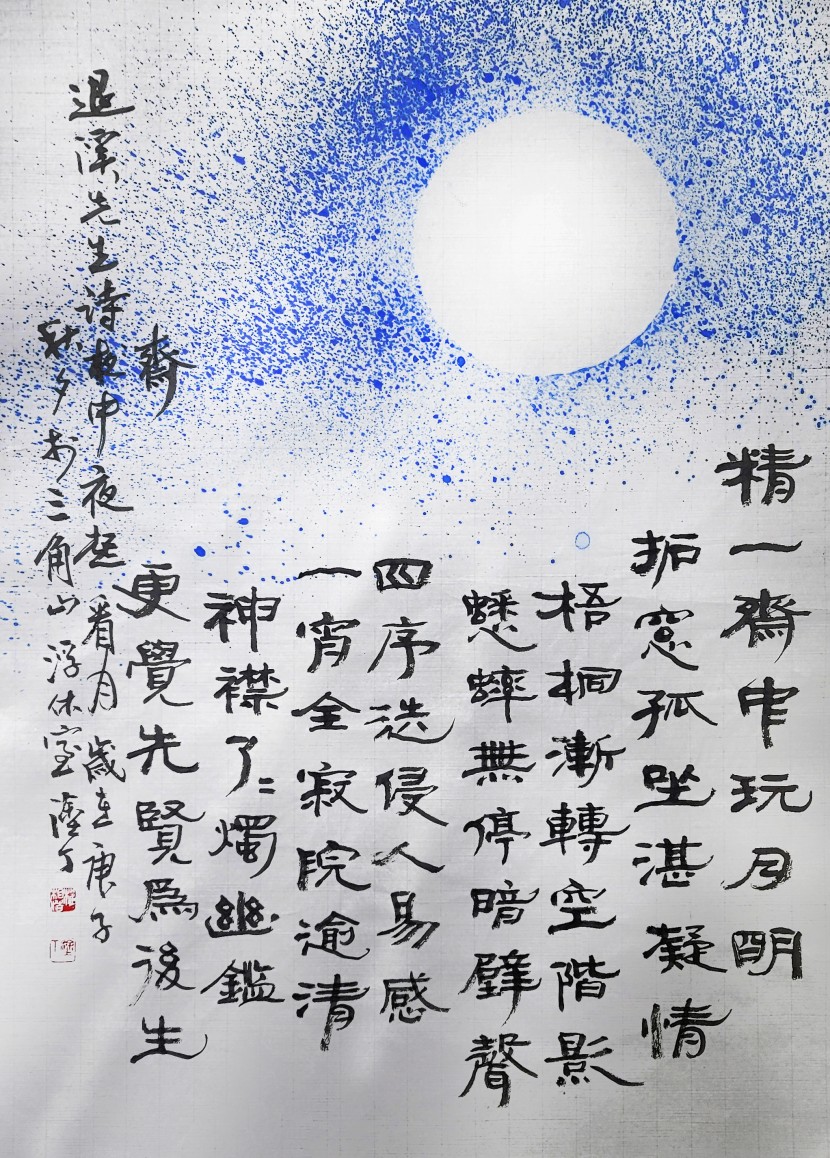 精一齋中玩月明
窓孤坐湛凝情
梧桐漸轉空階影
蟋蟀無停暗壁聲
四序迭侵人易感
一宵全寂院逾清
神襟了〻燭幽鑑
更覺先賢爲後生
齋
退溪先生詩中夜起看月歲在庚子
秋夕於三角山浮休室丁